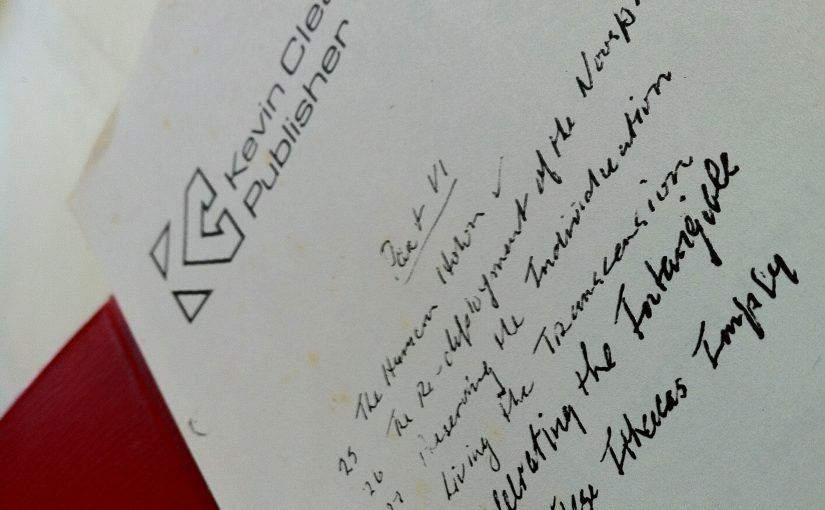 Kevin Clea
Publisher
Part VI
25 The Human Holon ✓
26 The Re-deployment of the Noosp
27 Preserving the Individuation
Living the Transcension
lebrating the Intangible
Ithacas Imply